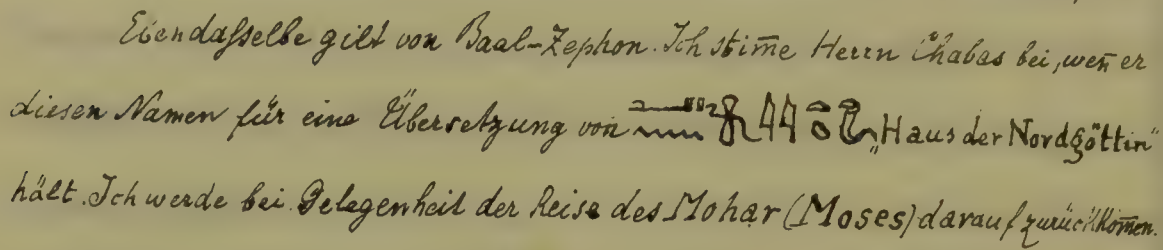 Ebendaſselbe gilt von Baal-Zephon. Ich stim̄e Herrn Chabas bei, wen̄ er
diesen Namen für eine Übersetzung von „Haus der Nordgöttin“
hält. Ich werde bei Gelegenheit der Reise des Mohar (Moses) darauf zurückkom̄en.